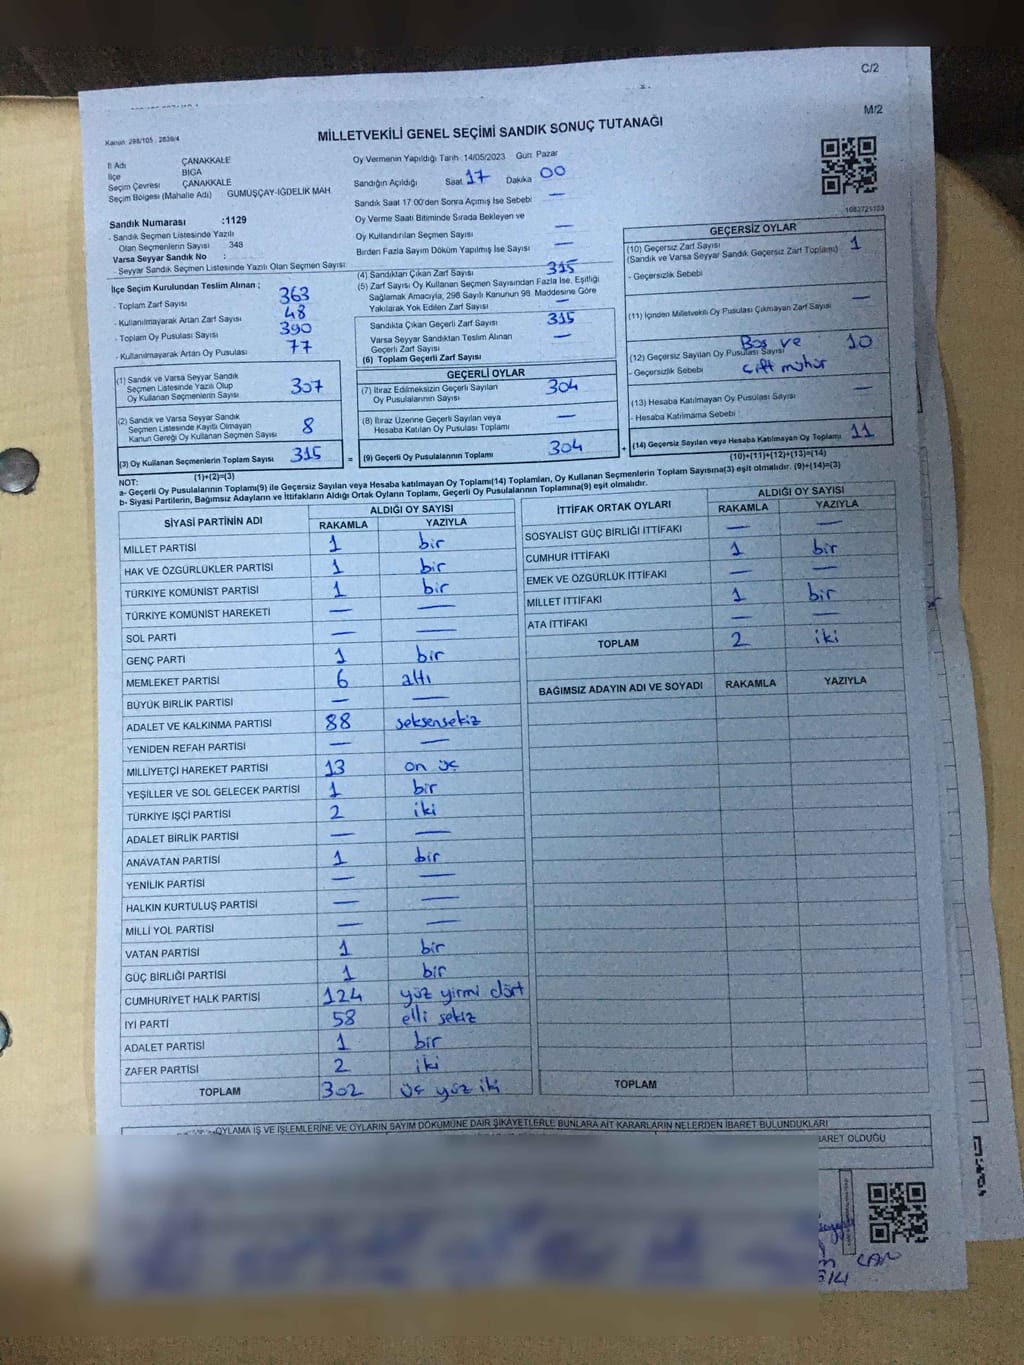 C/2
M/2
Kanun: 298/105 , 2839/4
MİLLETVEKİLİ GENEL SEÇİMİ SANDIK SONUÇ TUTANAĞI
İl Adı ÇANAKKALE
İlçe BİGA
Seçim Çevresi ÇANAKKALE
Seçim Bölgesi (Mahalle Adı) GÜMÜŞÇAY-İĞDELİK MAH.
Sandık Numarası :1129
- Sandık Seçmen Listesinde Yazılı
Olan Seçmenlerin Sayısı 348
Varsa Seyyar Sandık No :
- Seyyar Sandık Seçmen Listesinde Yazılı Olan Seçmen Sayısı:
İlçe Seçim Kurulundan Teslim Alınan ;
- Toplam Zarf Sayısı 363
- Kullanılmayarak Artan Zarf Sayısı 48
- Toplam Oy Pusulası Sayısı 390
- Kullanılmayarak Artan Oy Pusulası 77
(1) Sandık ve Varsa Seyyar Sandık
Seçmen Listesinde Yazılı Olup
Oy Kullanan Seçmenlerin Sayısı 307
(2) Sandık ve Varsa Seyyar Sandık
Seçmen Listesinde Kayıtlı Olmayan
Kanun Gereği Oy Kullanan Seçmen Sayısı 8
(3) Oy Kullanan Seçmenlerin Toplam Sayısı 315
(1)+(2)=(3)
Oy Vermenin Yapıldığı Tarih: 14/05/2023 Gün: Pazar
Sandığın Açıldığı Saat 17 Dakika 00
Sandık Saat 17 00'den Sonra Açılmış İse Sebebi —
Oy Verme Saati Bitiminde Sırada Bekleyen ve
Oy Kullandırılan Seçmen Sayısı —
Birden Fazla Sayım Döküm Yapılmış İse Sayısı —
(4) Sandıktan Çıkan Zarf Sayısı 315
(5) Zarf Sayısı Oy Kullanan Seçmen Sayısından Fazla İse, Eşitliği
Sağlamak Amacıyla, 298 Sayılı Kanunun 98. Maddesine Göre
Yakılarak Yok Edilen Zarf Sayısı —
Sandıkta Çıkan Geçerli Zarf Sayısı 315
Varsa Seyyar Sandıktan Teslim Alınan
Geçerli Zarf Sayısı —
(6) Toplam Geçerli Zarf Sayısı
GEÇERLİ OYLAR
(7) İtiraz Edilmeksizin Geçerli Sayılan
Oy Pusulalarının Sayısı 304
(8) İtiraz Üzerine Geçerli Sayılan veya
Hesaba Katılan Oy Pusulası Toplamı —
= (9) Geçerli Oy Pusulalarının Toplamı 304 +
1083721103
GEÇERSİZ OYLAR
(10) Geçersiz Zarf Sayısı 1
(Sandık ve Varsa Seyyar Sandık Geçersiz Zarf Toplamı)
- Geçersizlik Sebebi
(11) İçinden Milletvekili Oy Pusulası Çıkmayan Zarf Sayısı —
(12) Geçersiz Sayılan Oy Pusulası Sayısı Boş ve 10
- Geçersizlik Sebebi çift mühür
(13) Hesaba Katılmayan Oy Pusulası Sayısı —
- Hesaba Katılmama Sebebi :
(14) Geçersiz Sayılan veya Hesaba Katılmayan Oy Toplamı 11
(10)+(11)+(12)+(13)=(14)
NOT:
a- Geçerli Oy Pusulalarının Toplamı(9) ile Geçersiz Sayılan veya Hesaba katılmayan Oy Toplamı(14) Toplamları, Oy Kullanan Seçmenlerin Toplam Sayısına(3) eşit olmalıdır. (9)+(14)=(3)
b- Siyasi Partilerin, Bağımsız Adayların ve İttifakların Aldığı Ortak Oyların Toplamı, Geçerli Oy Pusulalarının Toplamına(9) eşit olmalıdır.
SİYASİ PARTİNİN ADI ALDIĞI OY SAYISI
RAKAMLA YAZIYLA
MİLLET PARTİSİ 1 bir
HAK VE ÖZGÜRLÜKLER PARTİSİ 1 bir
TÜRKİYE KOMÜNİST PARTİSİ 1 bir
TÜRKİYE KOMÜNİST HAREKETİ — —
SOL PARTİ — —
GENÇ PARTİ 1 bir
MEMLEKET PARTİSİ 6 altı
BÜYÜK BİRLİK PARTİSİ — —
ADALET VE KALKINMA PARTİSİ 88 seksensekiz
YENİDEN REFAH PARTİSİ — —
MİLLİYETÇİ HAREKET PARTİSİ 13 on üç
YEŞİLLER VE SOL GELECEK PARTİSİ 1 bir
TÜRKİYE İŞÇİ PARTİSİ 2 iki
ADALET BİRLİK PARTİSİ — —
ANAVATAN PARTİSİ 1 bir
YENİLİK PARTİSİ — —
HALKIN KURTULUŞ PARTİSİ — —
MİLLİ YOL PARTİSİ — —
VATAN PARTİSİ 1 bir
GÜÇ BİRLİĞİ PARTİSİ 1 bir
CUMHURİYET HALK PARTİSİ 124 yüz yirmi dört
İYİ PARTİ 58 elli sekiz
ADALET PARTİSİ 1 bir
ZAFER PARTİSİ 2 iki
TOPLAM 302 üç yüz iki
İTTİFAK ORTAK OYLARI ALDIĞI OY SAYISI
RAKAMLA YAZIYLA
SOSYALİST GÜÇ BİRLİĞİ İTTİFAKI — —
CUMHUR İTTİFAKI 1 bir
EMEK VE ÖZGÜRLÜK İTTİFAKI — —
MİLLET İTTİFAKI 1 bir
ATA İTTİFAKI — —
TOPLAM 2 iki
BAĞIMSIZ ADAYIN ADI VE SOYADI RAKAMLA YAZIYLA
TOPLAM
OYLAMA İŞ VE İŞLEMLERİNE VE OYLARIN SAYIM DÖKÜMÜNE DAİR ŞİKAYETLERLE BUNLARA AİT KARARLARIN NELERDEN İBARET BULUNDUKLARI
BARET OLDUĞU
CAN